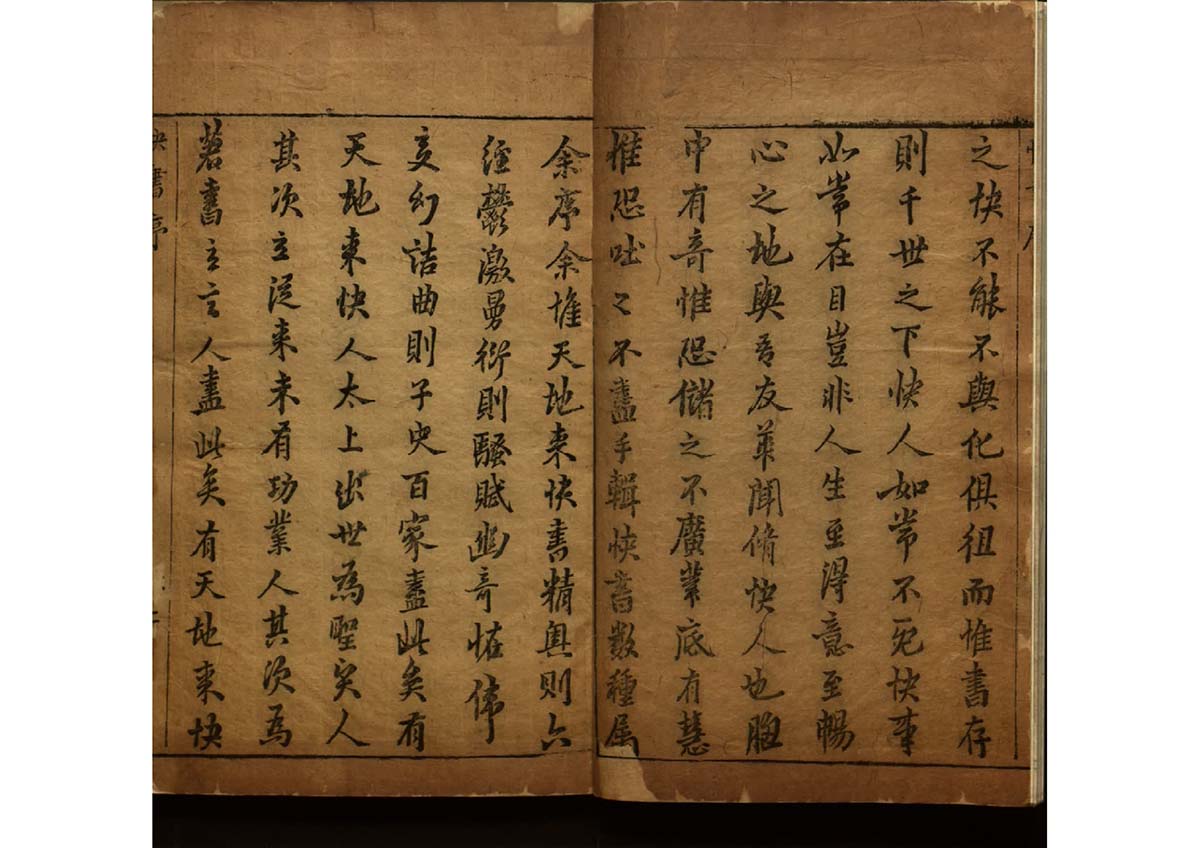 之快不能不與化俱徂而惟書存
則千世之下快人如常不死快事
如常在目豈非人生至得意至暢
心之地與吾友華聞脩快人也胸
中有奇惟恐儲之不廣筆底有慧
惟恐吐之不盡手輯快書數種屬
余序余惟天地來快書精奧則六
經鬱激勇衍則騷賦幽奇恠偉
玄幻詰曲則子史百家盡此矣有
天地來快人太上出世為聖賢人
其次立從來未有功業人其次為
著書立言人盡此矣有天地來快
快書序